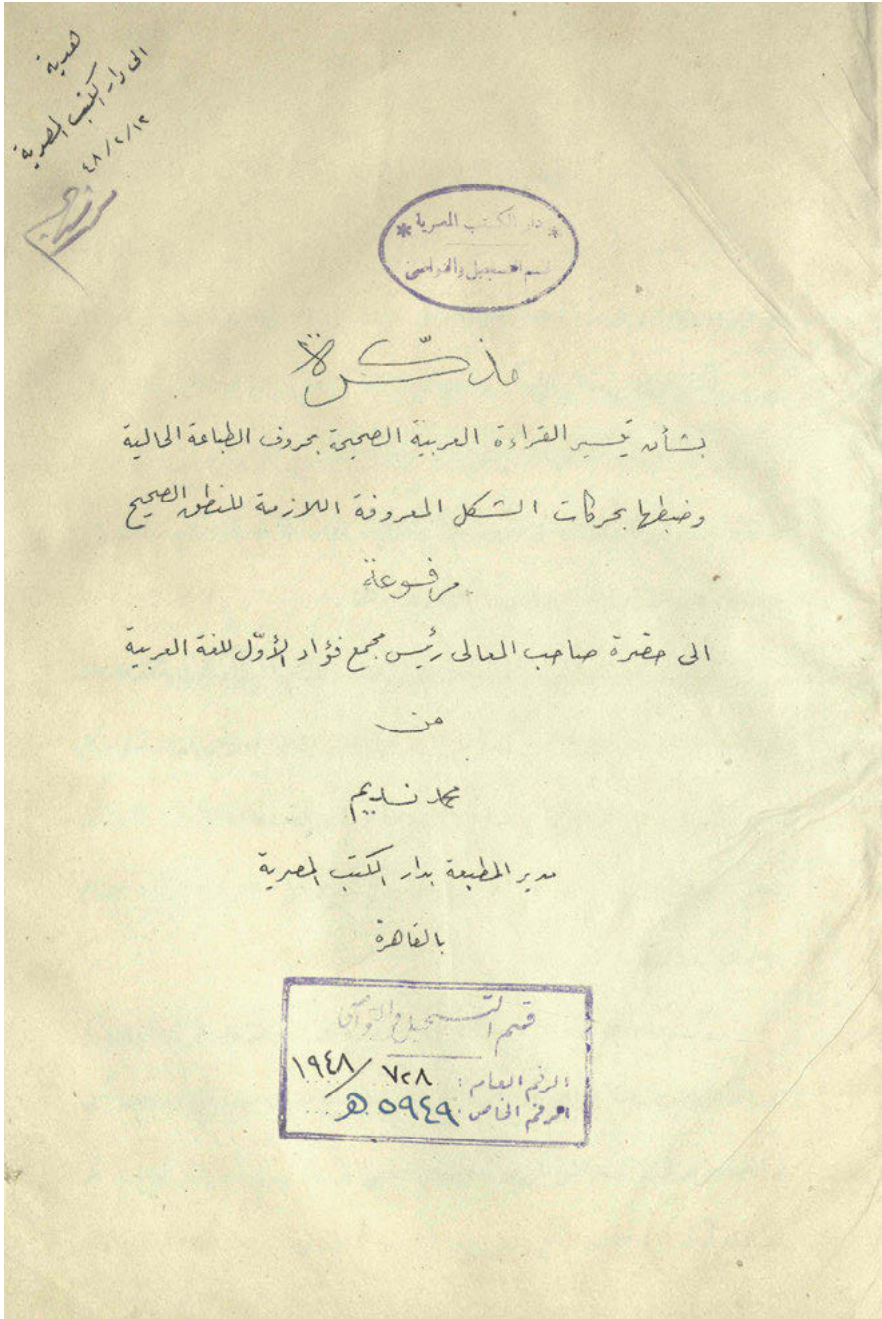 هدية
الى دار الكتب المصرية
٤٨/٢/١٢
دار الكتب المصرية
قسم التسجيل والفهارس
مذكّرة
بشأن تيسير القراءة العربية الصحيحة بحروف الطباعة الحالية
وضبطها بحركات الشكل المعروفة اللازمة للنطق الصحيح
مرفوعة
الى حضرة صاحب المعالى رئيس مجمع فؤاد الأوّل للغة العربية
من
محمد نديم
مدير المطبعة بدار الكتب المصرية
بالقاهرة
قسم التسجيل
الرقم العام : ٧٢٨ / ١٩٤٨
الرقم الخاص : ٥٩٤٩ ه